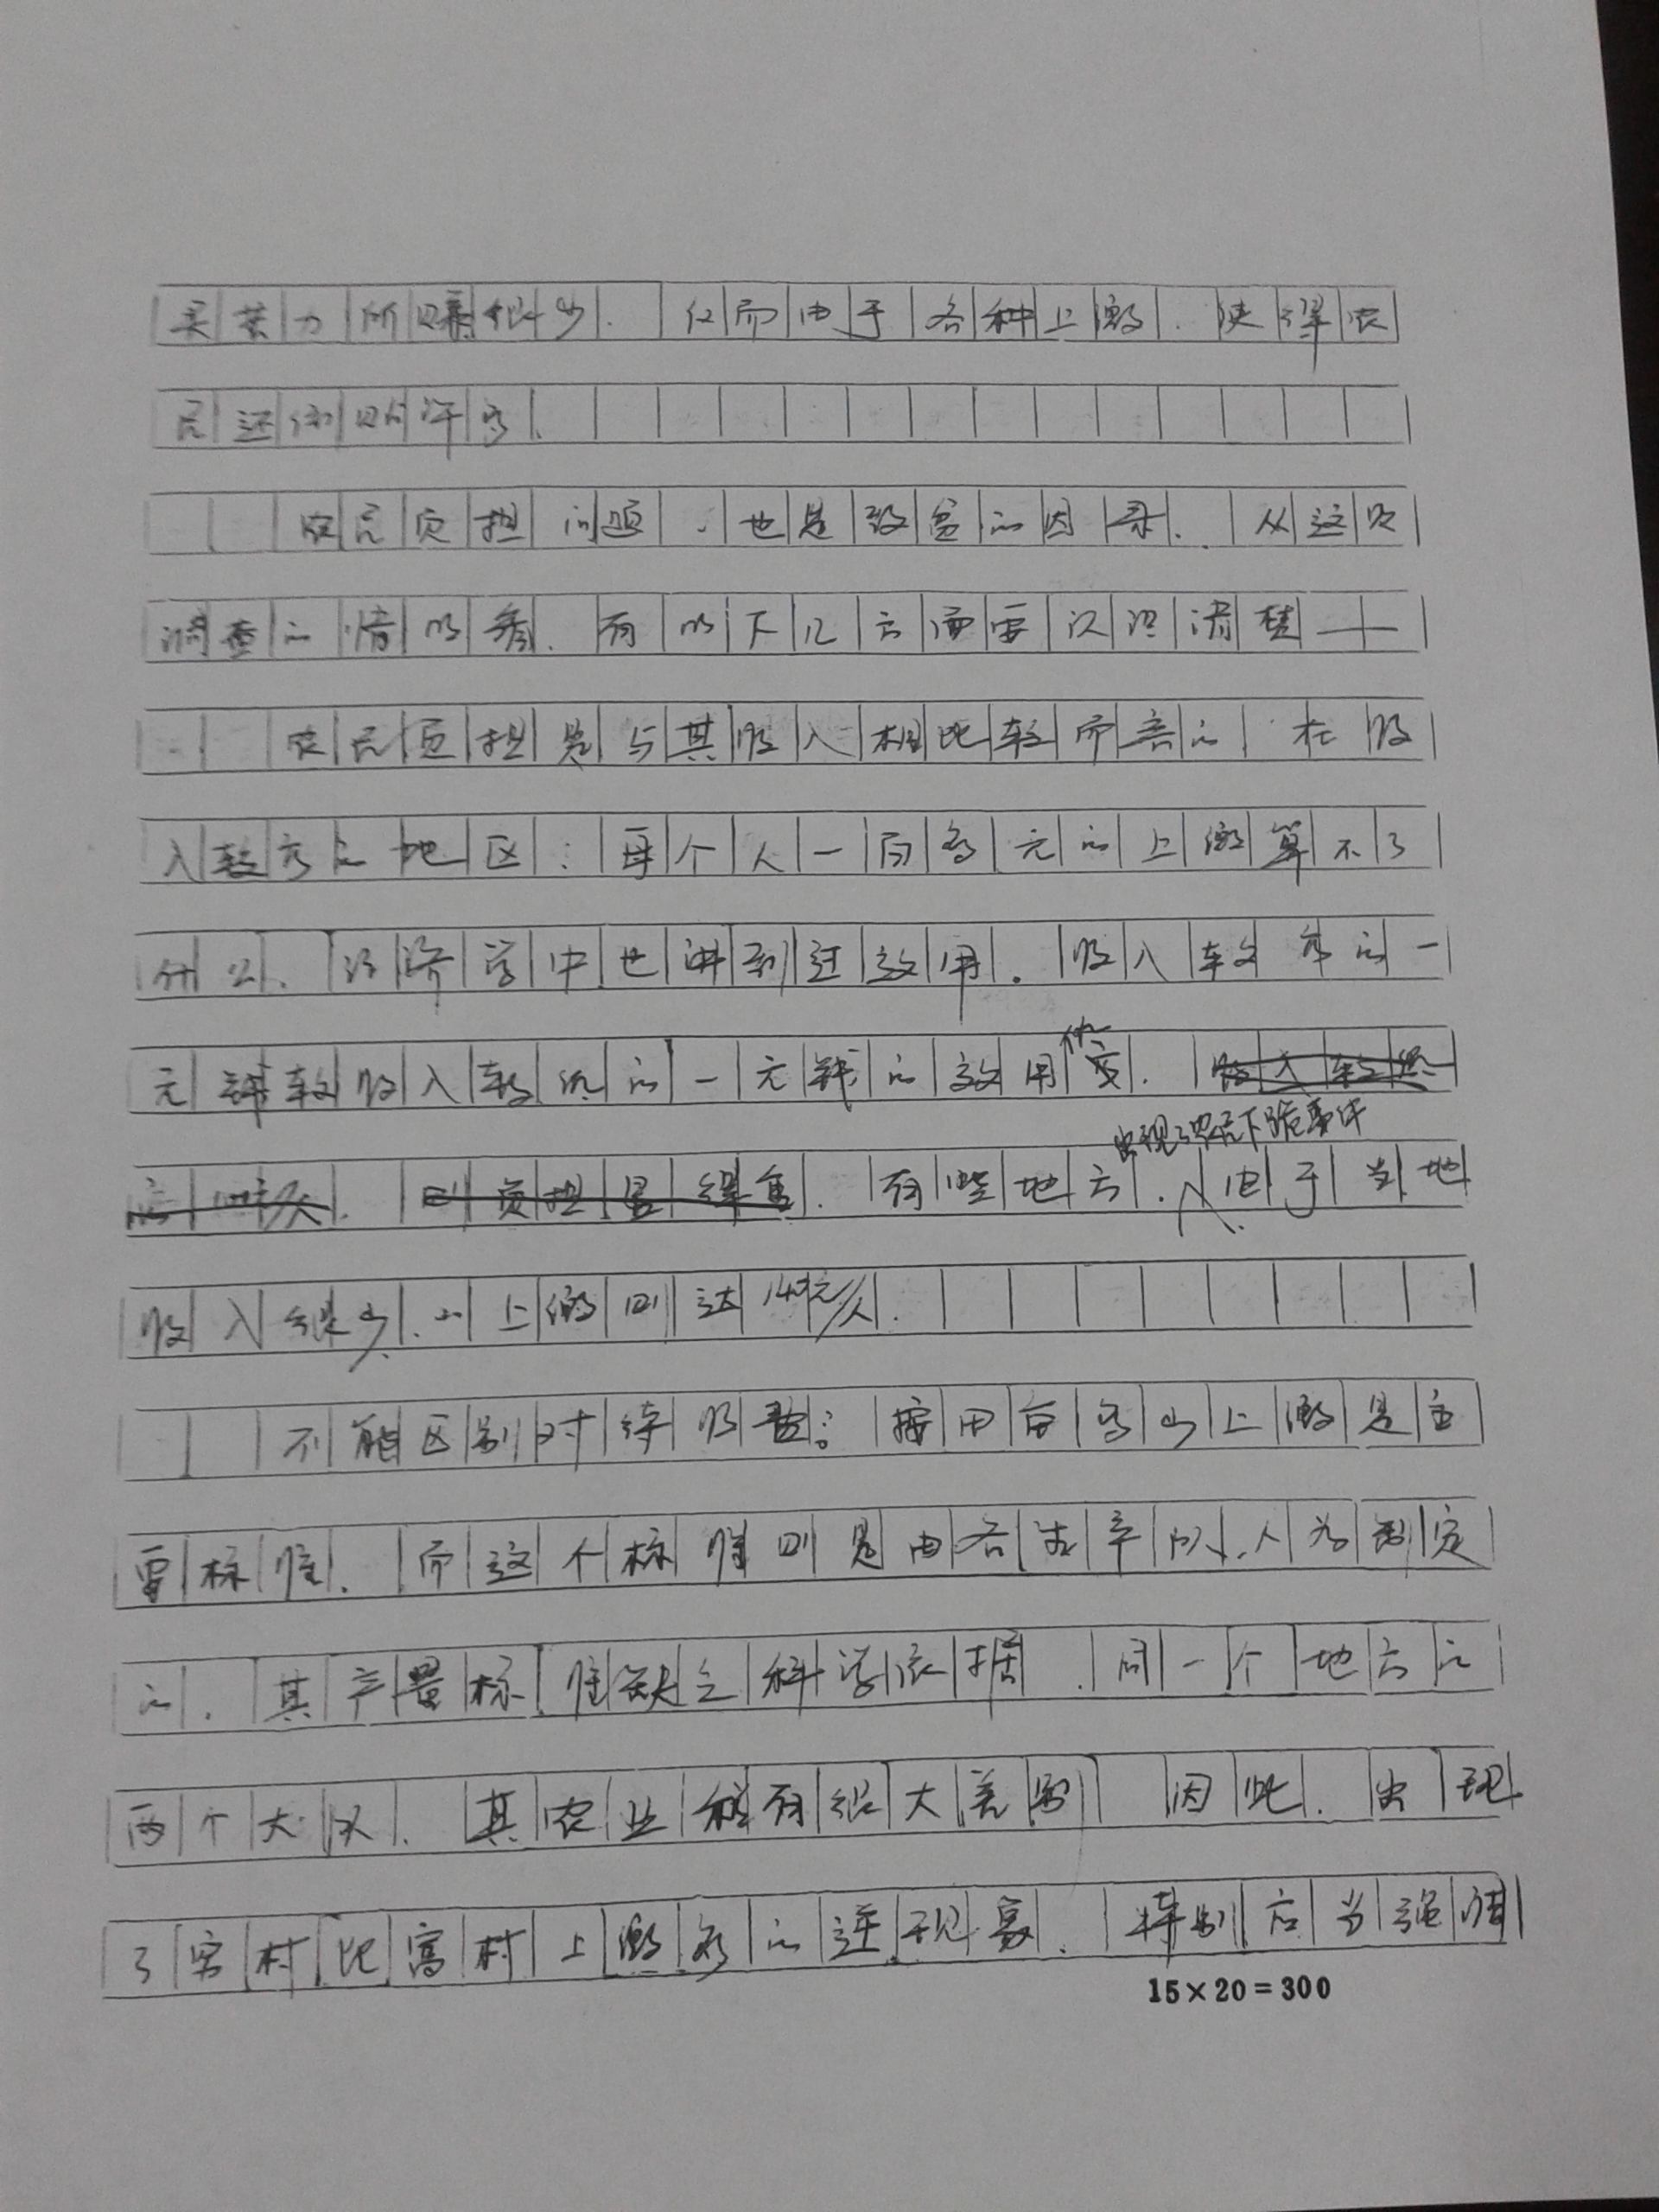 卖苦力所赚很少. 仅而由于各种上缴. 使得农
民还倒贴许多.
农民负担问题. 也是致贫的因素. 从这次
调查的情况看. 有以下几方面要认识清楚——
农民负担是与其收入相比较而言的. 在收
入较高的地区: 每个人一百多元的上缴算不了
什么. 经济学中也讲到过效用. 收入较高的一
元钱较收入较低的一元钱的效用低.
出现了农民下跪事件
有些地方. 由于当地
收入很少. 而上缴则达140元/人.
不能区别对待收益: 按田亩多少上缴是主
要标准. 而这个标准则是由各生产队人为制定
的. 其产量标准缺乏科学依据. 同一个地方的
两个大队. 其农业税有很大差别 因此. 出现
了穷村比富村上缴多的逆现象. 特别应当强调
15×20=300